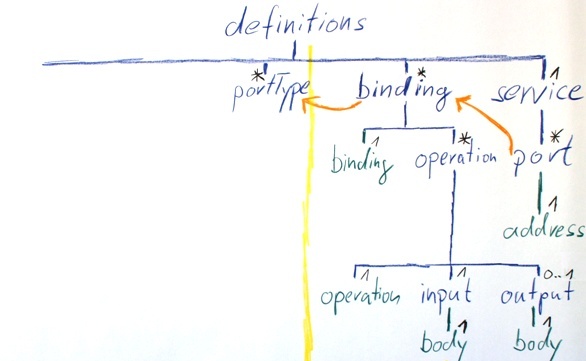 definitions
* * 1
portType binding service
1 * *
binding operation port
1
address
1 1 0..1
operation input output
1 1
body body